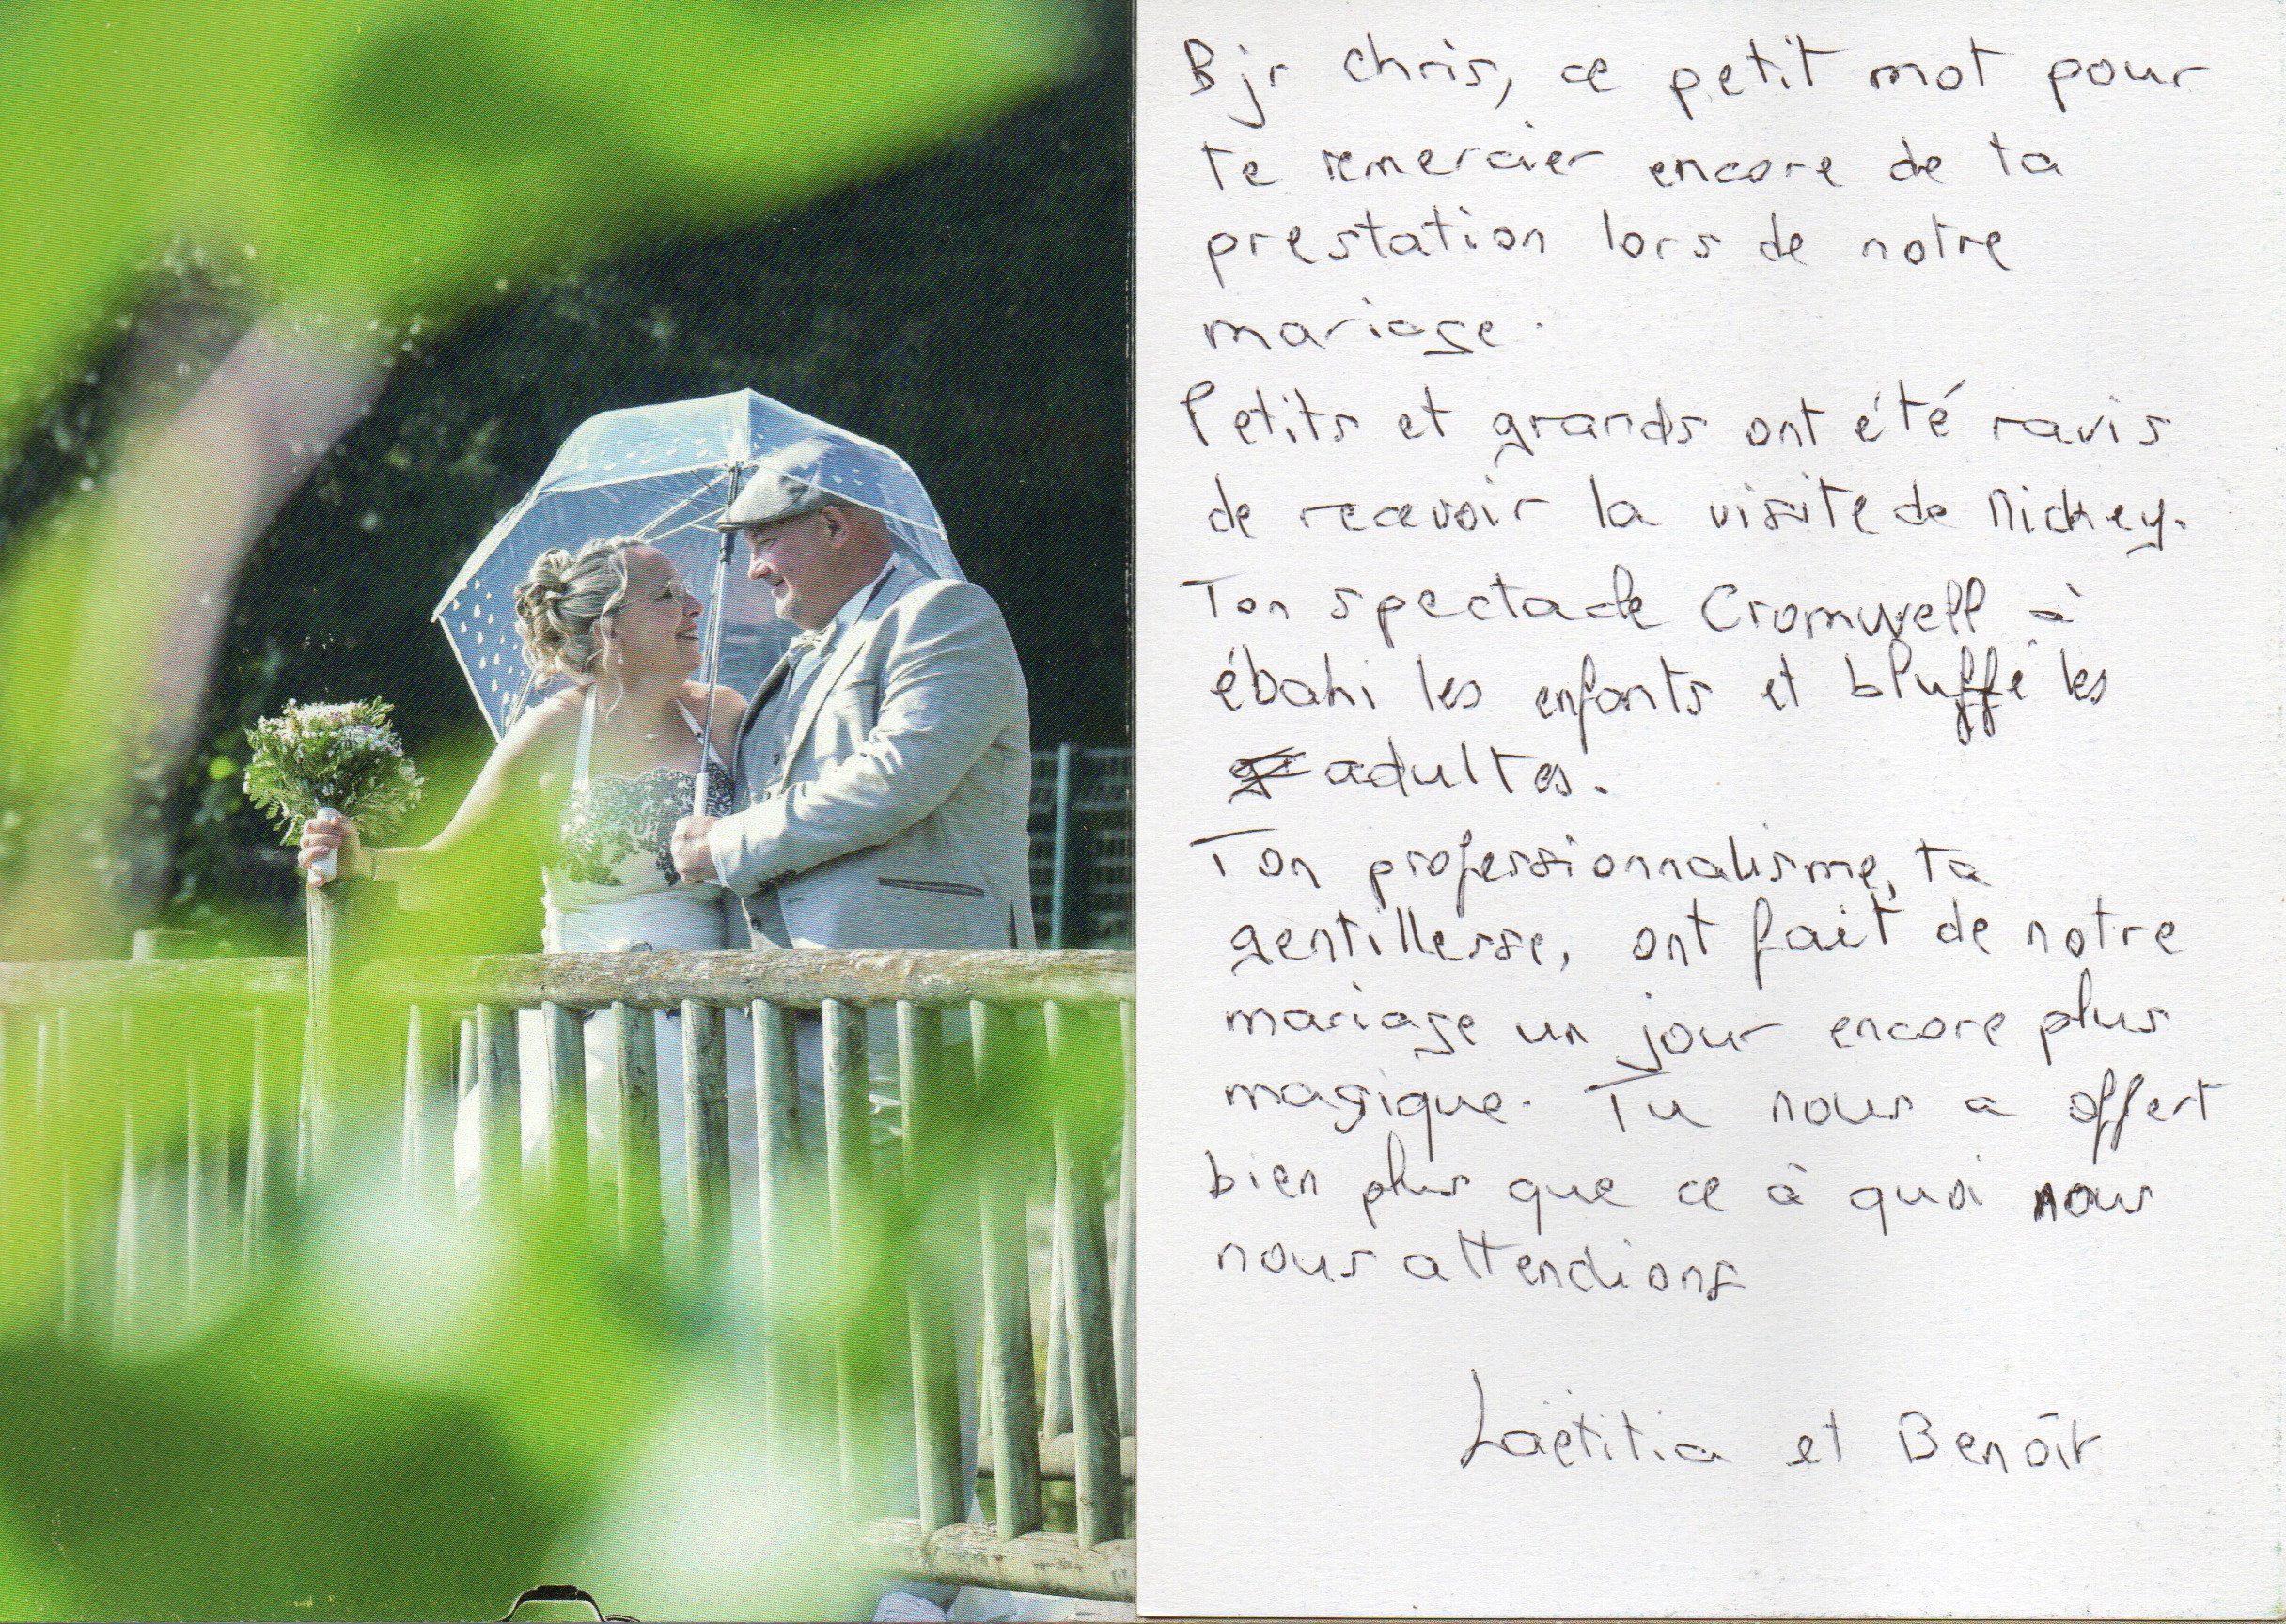 Bjr Chris, ce petit mot pour
te remercier encore de ta
prestation lors de notre
mariage.
Petits et grands ont été ravis
de recevoir la visite de Mickey.
Ton spectacle Cromwell à
ébahi les enfants et bluffé les
adultes.
Ton professionnalisme, ta
gentillesse, ont fait de notre
mariage un jour encore plus
magique. Tu nous a offert
bien plus que ce à quoi nous
nous attendions
Laëtitia et Benoît